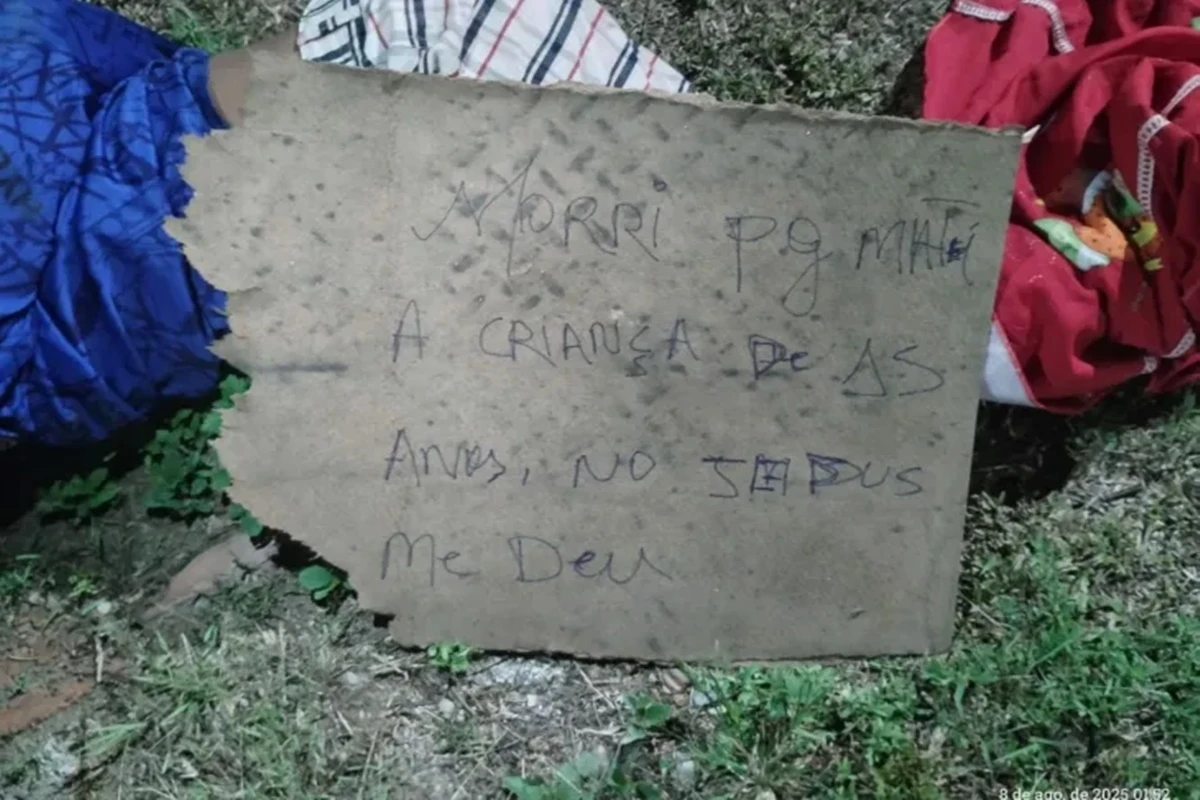 MORRI PG MATEI
A CRIANÇA De 15
ANOS, NO
Me Deu
8 de ago. de 2025 01:52